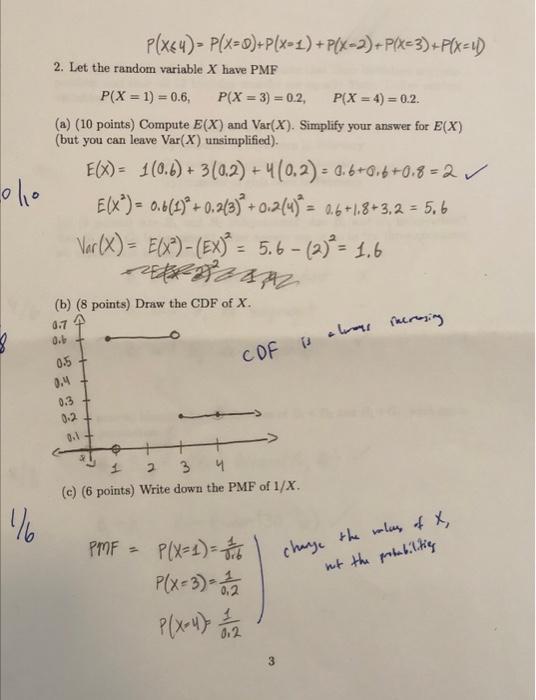 P(X≤4) = P(X=0)+P(X=1)+P(X=2)+P(X=3)+P(X=4)
2. Let the random variable X have PMF
P(X = 1) = 0.6, P(X = 3) = 0.2, P(X = 4) = 0.2.
(a) (10 points) Compute E(X) and Var(X). Simplify your answer for E(X)
(but you can leave Var(X) unsimplified).
E(X) = 1(0.6) + 3(0.2) + 4(0.2) = 0.6+0.6+0.8 = 2 ✓
10/10
E(X²) = 0.6(1)² + 0.2(3)² + 0.2(4)² = 0.6+1.8+3.2 = 5.6
Var(X) = E(X²)-(EX)² = 5.6 - (2)² = 1.6
(b) (8 points) Draw the CDF of X.
0.7
0.6
0.5
0.4
0.3
0.2
0.1
1 2 3 4
CDF is always increasing
(c) (6 points) Write down the PMF of 1/X.
1/6
PMF = P(X=1) = 1/0.6
P(X=3) = 1/0.2
P(X=4) = 1/0.2
change the values of X,
not the probabilities
3